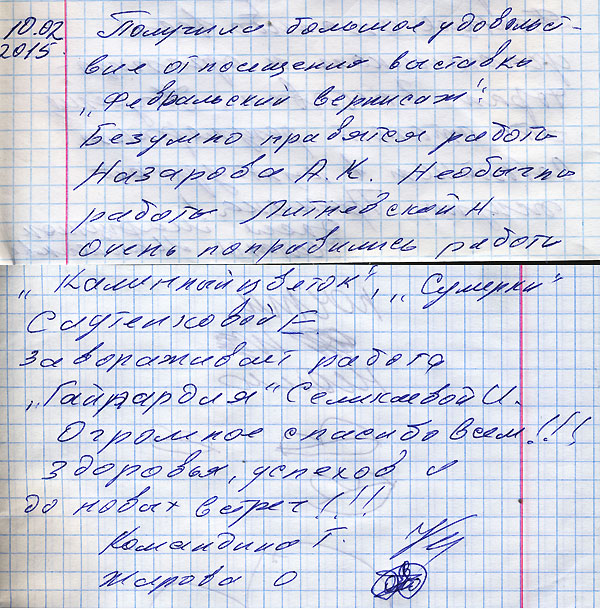 10.02
2015.
Получила большое удовольст-
вие от посещения выставки
„Февральский вернисаж"!
Безумно нравятся работы
Назарова А.К. Необычны
работы Литневской Н.
Очень понравились работы
„Каменный цветок", „Сумерки"
Е.
завораживает работа
„Гайлардия" Селикаевой И.
Огромное спасибо всем!!!
Здоровья, успехов и
до новых встреч!!!
Командина Т.
Жарова О